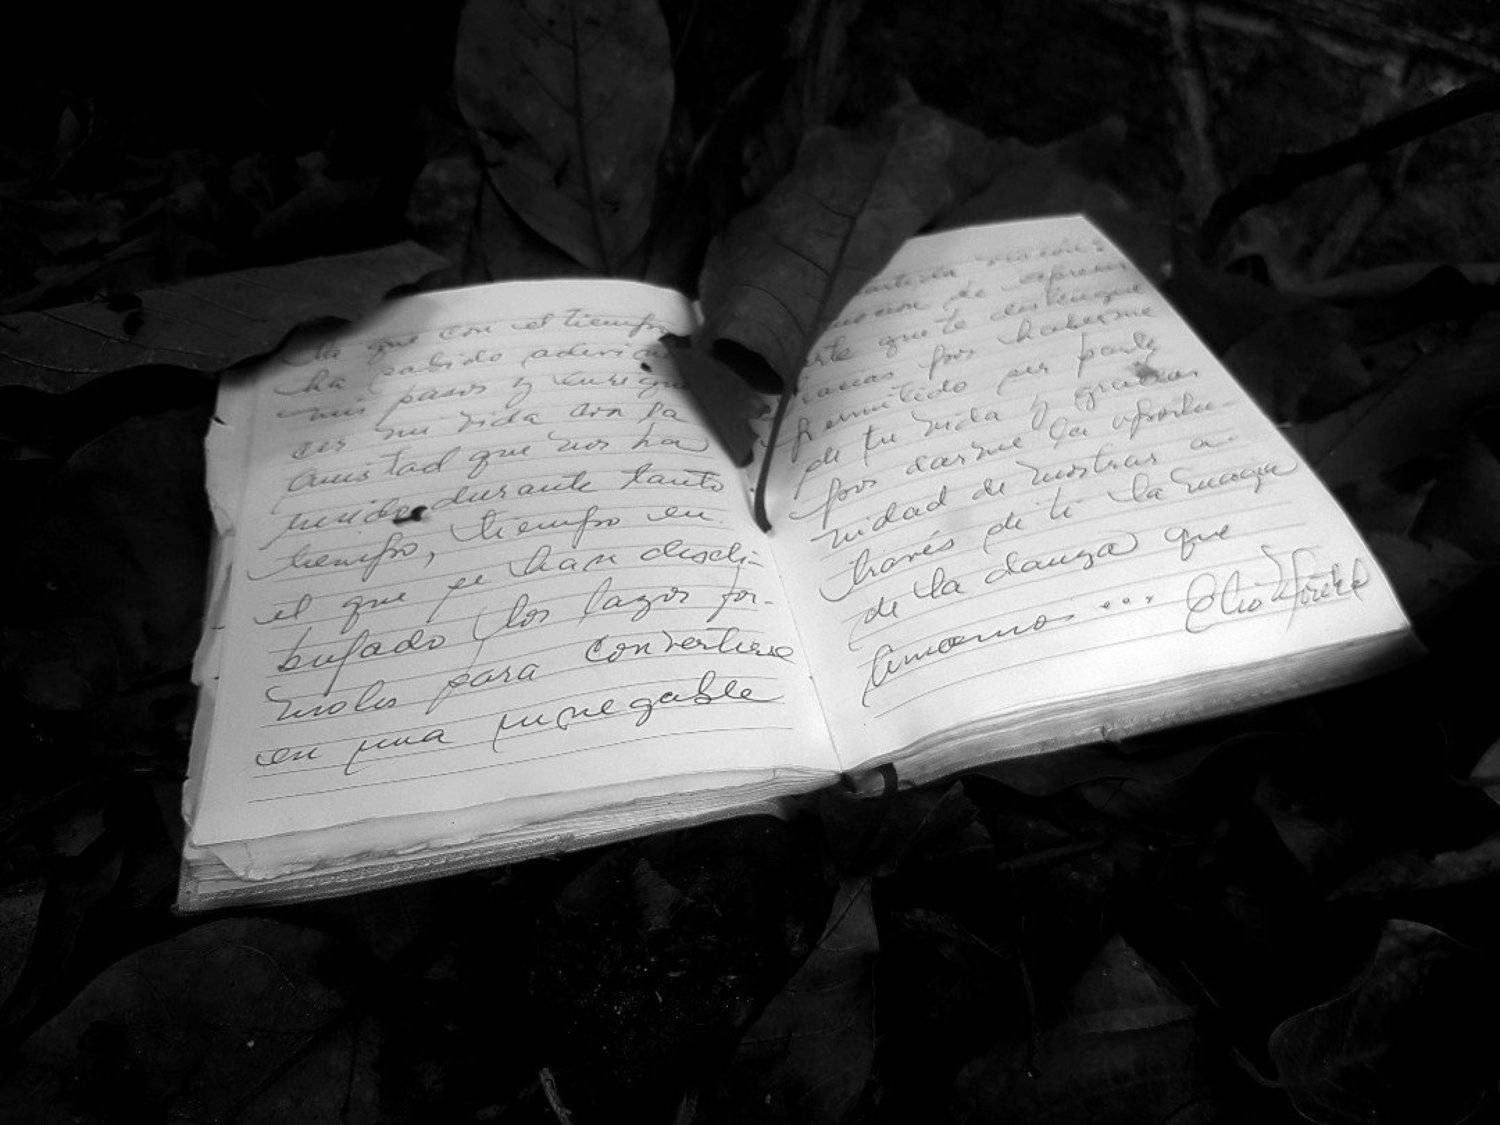 la que con el tiempo
ha sabido adivinar
mis pasos y enrique
cer mi vida con la
amistad que nos ha
unido durante tanto
tiempo, tiempo en
el que se han disdi-
bujado los lazos for-
males para convertirse
en una innegable
de expresar
que te distingue
gracias por haberme
permitido ser parte
de tu vida y gracias
por darme la oportu-
nidad de mostrar a
través de ti la magia
de la danza que
amamos...